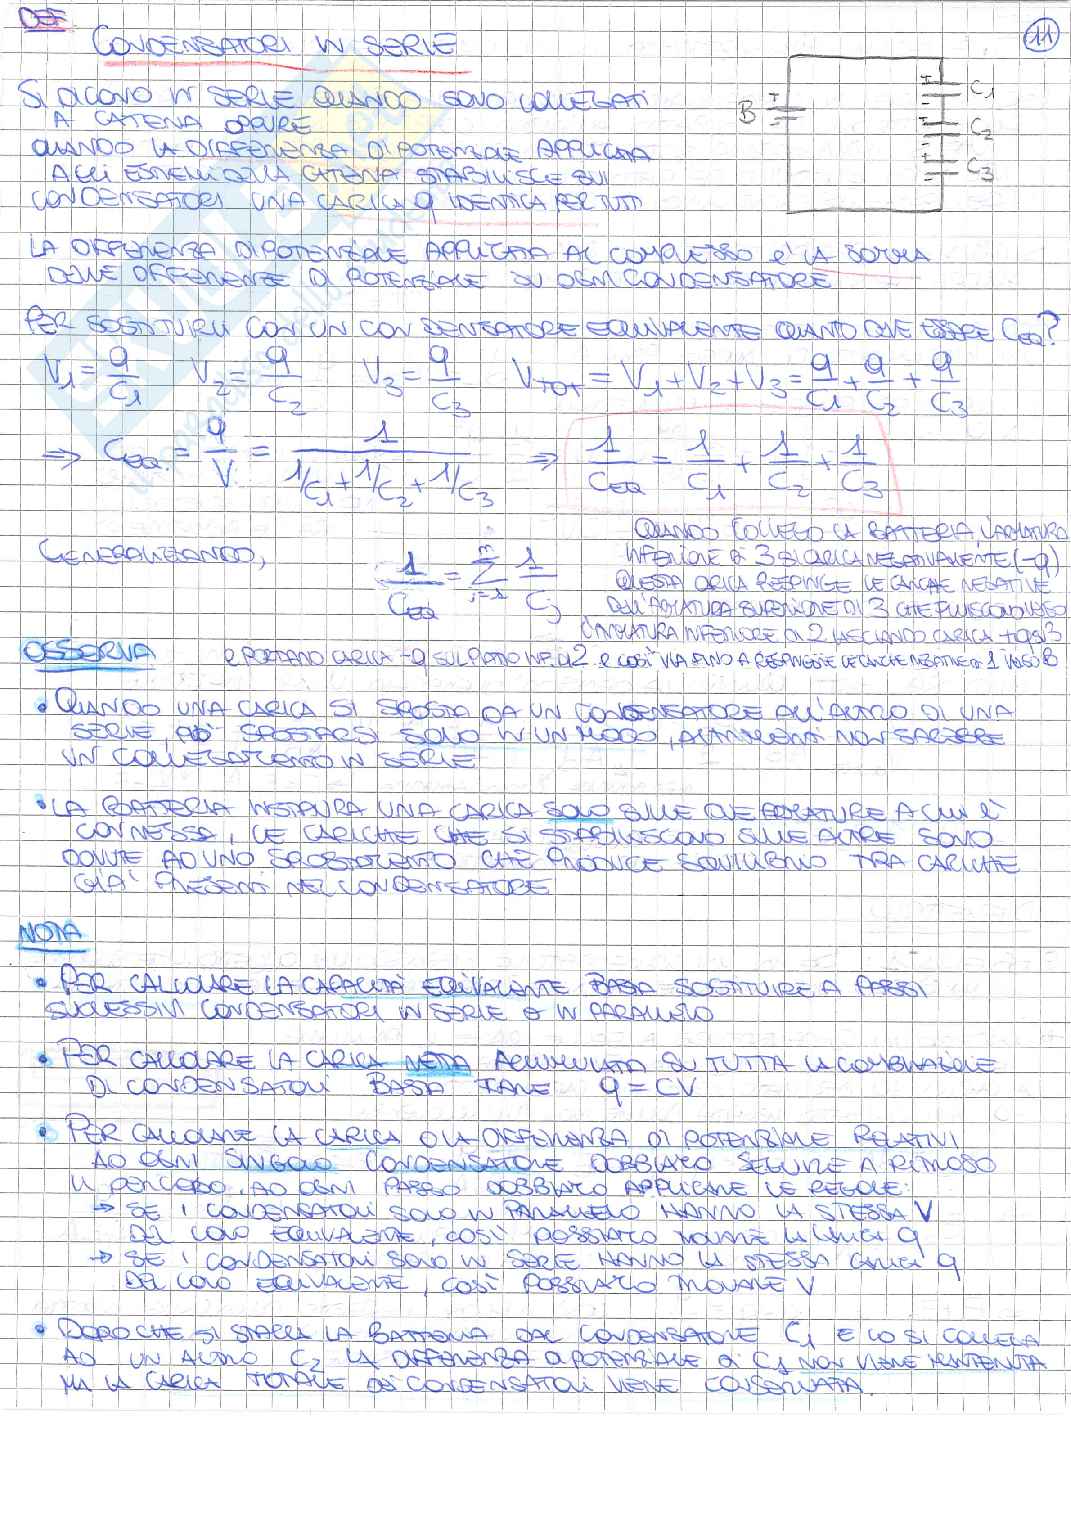 DEF
11
CONDENSATORI IN SERIE
SI DICONO IN SERIE QUANDO SONO COLLEGATI
A CATENA OPPURE
QUANDO LA DIFFERENZA DI POTENZIALE APPLICATA
AGLI ESTREMI DELLA CATENA STABILISCE SUI
CONDENSATORI UNA CARICA q IDENTICA PER TUTTI
B + - + - C1 + - C2 + - C3
LA DIFFERENZA DI POTENZIALE APPLICATA AL COMPLESSO E' LA SOMMA
DELLE DIFFERENZE DI POTENZIALE SU OGNI CONDENSATORE
PER SOSTITUIRLI CON UN CONDENSATORE EQUIVALENTE QUANTO DEVE ESSERE CEQ?
V1 = q/C1 V2 = q/C2 V3 = q/C3 VTOT = V1 + V2 + V3 = q/C1 + q/C2 + q/C3
⇒ CEQ. = q/V = 1/(1/C1 + 1/C2 + 1/C3) ⇒ 1/CEQ = 1/C1 + 1/C2 + 1/C3
GENERALIZZANDO, 1/CEQ = Σ j=1 n 1/Cj
QUANDO COLLEGO LA BATTERIA, L'ARMATURA
INFERIORE DI 3 SI CARICA NEGATIVAMENTE (-q)
QUESTA CARICA RESPINGE LE CARICHE NEGATIVE
DELL'ARMATURA SUPERIORE DI 3 CHE FLUISCONO VERSO
L'ARMATURA INFERIORE DI 2 LASCIANDO CARICA +q SU 3
E PORTANO CARICA -q SUL PIATTO INF. DI 2 E COSÌ VIA FINO A RESPINGERE LE CARICHE NEGATIVE DI 1 VERSO B
OSSERVA
• QUANDO UNA CARICA SI SPOSTA DA UN CONDENSATORE ALL'ALTRO DI UNA
SERIE, PUÒ SPOSTARSI SOLO IN UN MODO, ALTRIMENTI NON SAREBBE
UN COLLEGAMENTO IN SERIE
• LA BATTERIA INSTAURA UNA CARICA SOLO SULLE DUE ARMATURE A CUI È
CONNESSA, LE CARICHE CHE SI STABILISCONO SULLE ALTRE SONO
DOVUTE AD UNO SPOSTAMENTO CHE PRODUCE EQUILIBRIO TRA CARICHE
GIA' PRESENTI NEL CONDENSATORE
NOTA
• PER CALCOLARE LA CAPACITÀ EQUIVALENTE BASTA SOSTITUIRE A PASSI
SUCCESSIVI CONDENSATORI IN SERIE O IN PARALLELO
• PER CALCOLARE LA CARICA NETTA ACCUMULATA SU TUTTA LA COMBINAZIONE
DI CONDENSATORI BASTA FARE q = CV
• PER CALCOLARE LA CARICA O LA DIFFERENZA DI POTENZIALE RELATIVI
AD OGNI SINGOLO CONDENSATORE DOBBIAMO SEGUIRE A RITROSO
IL PERCORSO. AD OGNI PASSO DOBBIAMO APPLICARE LE REGOLE:
→ SE I CONDENSATORI SONO IN PARALLELO HANNO LA STESSA V
DEL LORO EQUIVALENTE, COSÌ POSSIAMO TROVARE LA CARICA q
→ SE I CONDENSATORI SONO IN SERIE HANNO LA STESSA CARICA q
DEL LORO EQUIVALENTE, COSÌ POSSIAMO TROVARE V
• DOPO CHE SI STACCA LA BATTERIA DAL CONDENSATORE C1 E LO SI COLLEGA
AD UN ALTRO C2 LA DIFFERENZA DI POTENZIALE DI C1 NON VIENE MANTENUTA
MA LA CARICA TOTALE DEI CONDENSATORI VIENE CONSERVATA.